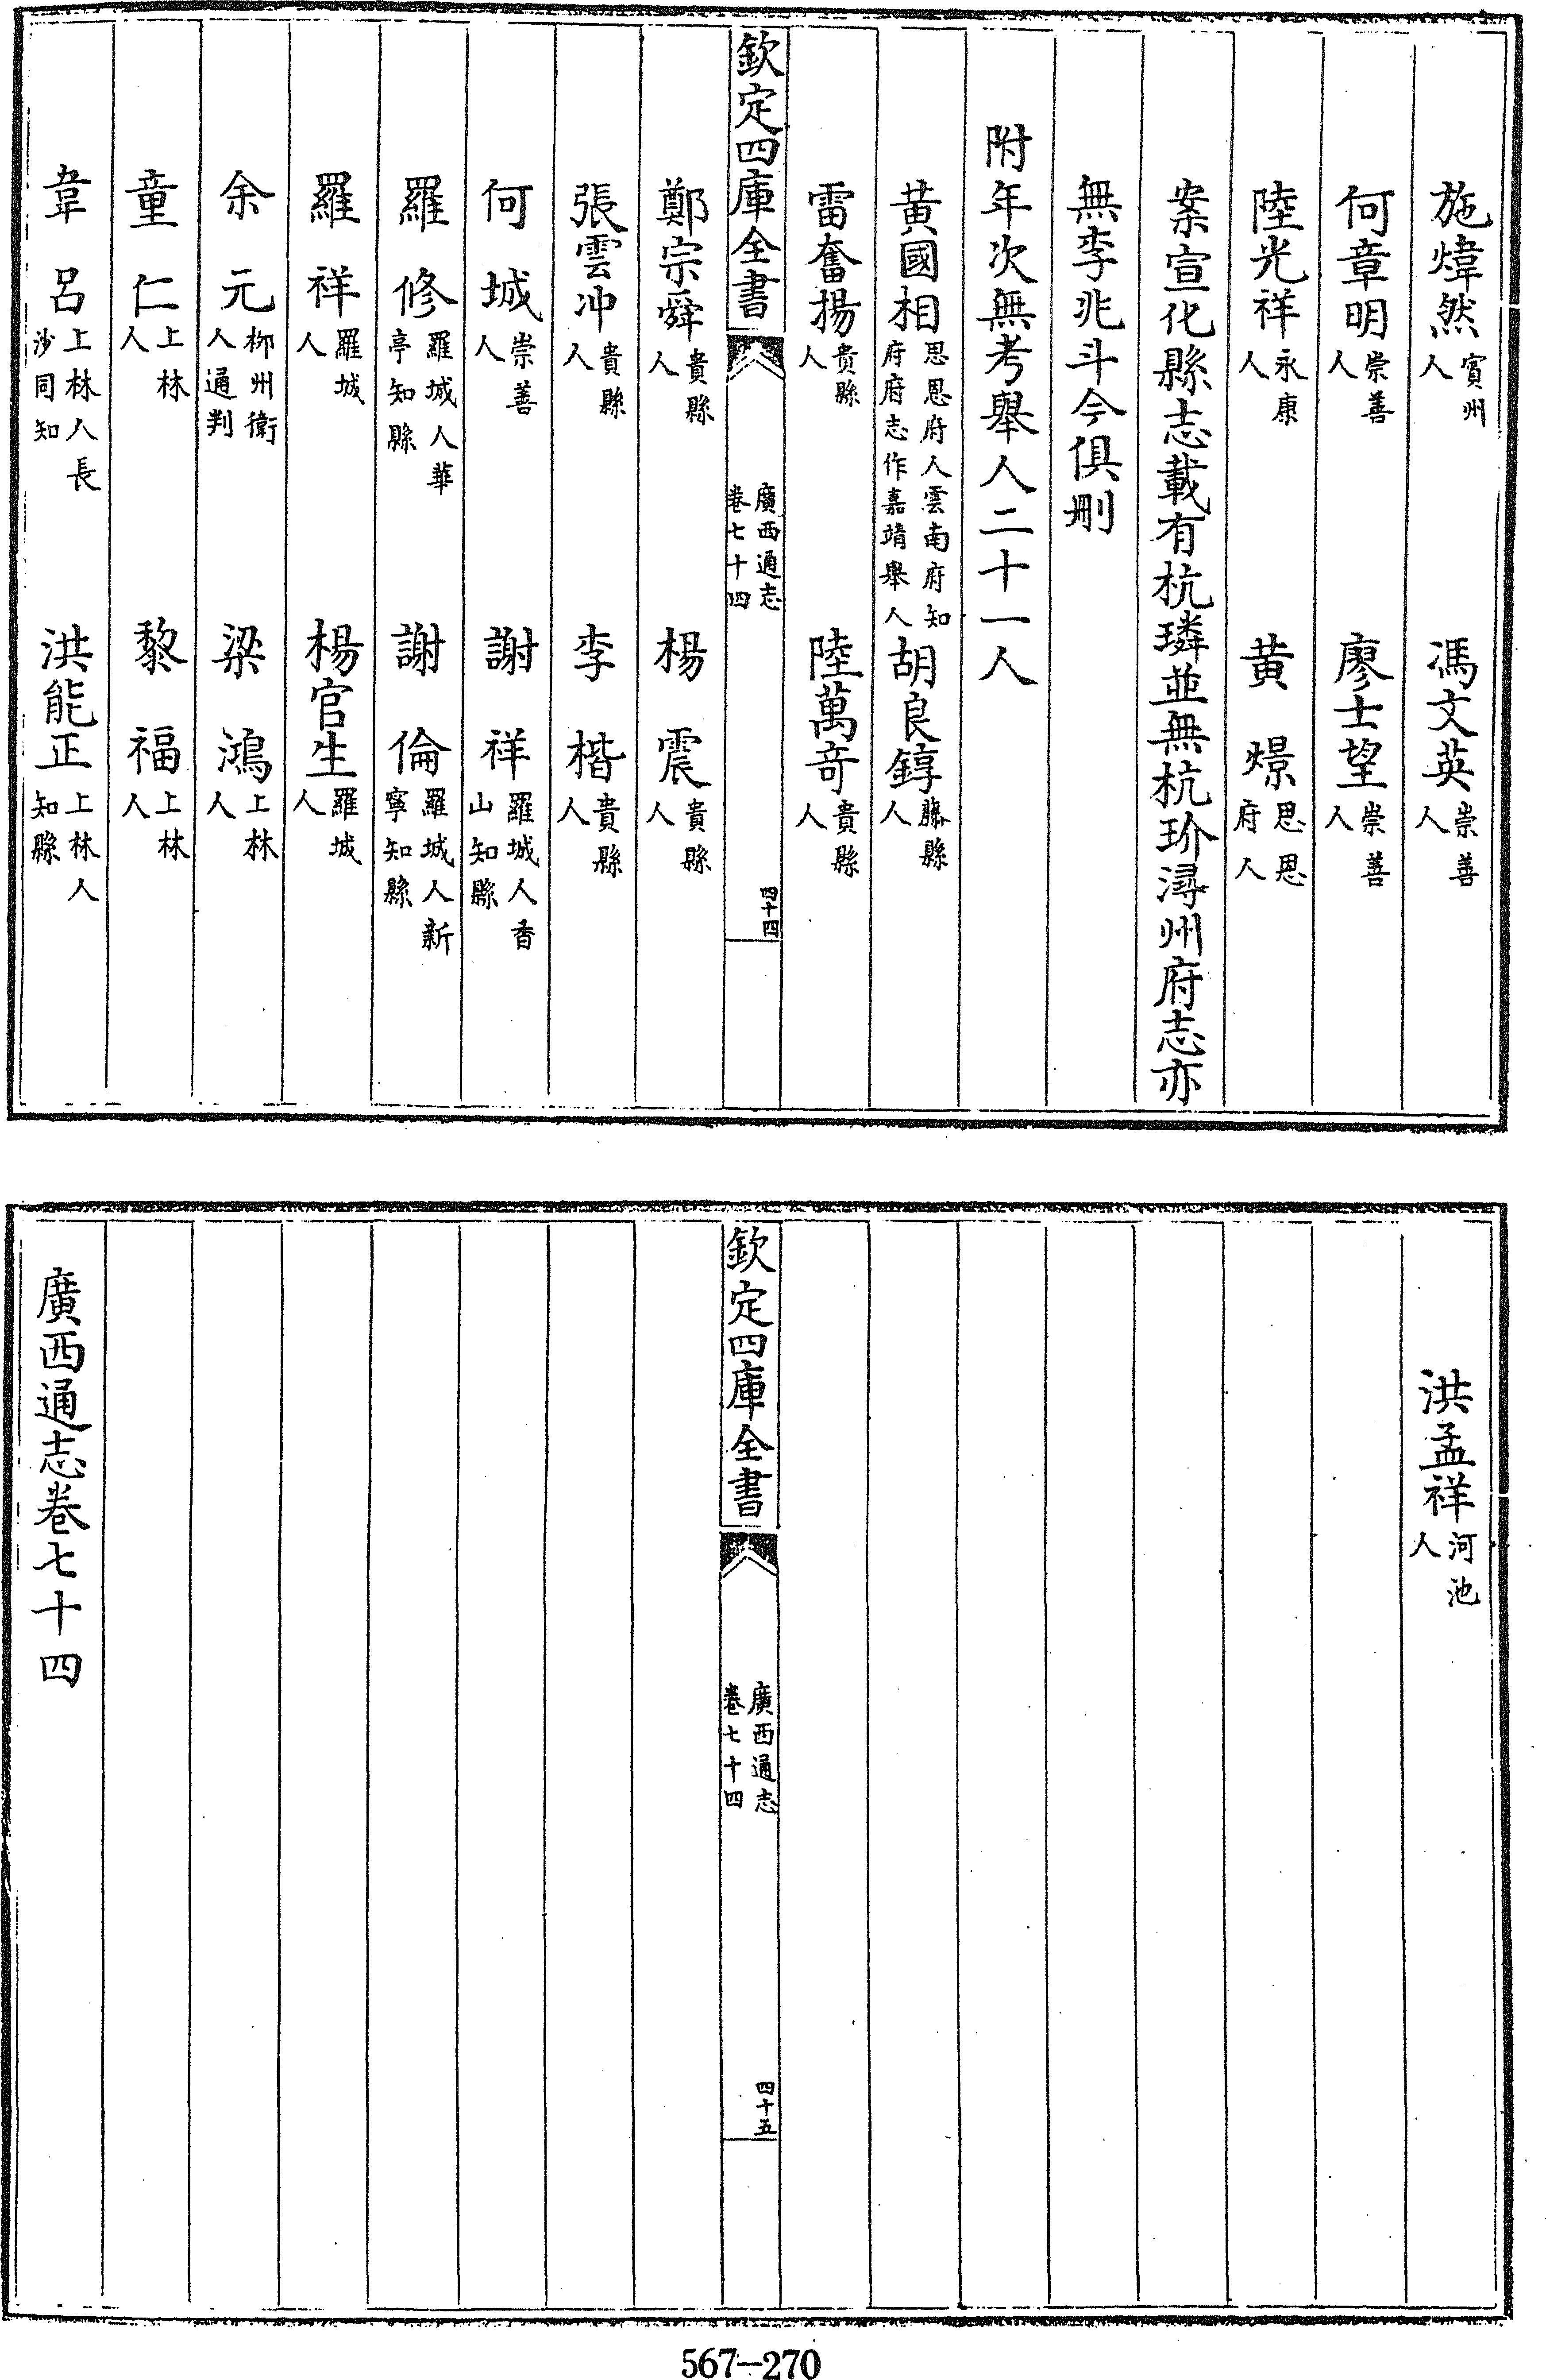 施煒然賓州人　馮文英崇善人
何章明崇善人　廖士望崇善人
陸光祥永康人　黄　煛思恩府人
案宣化縣志載有杭璘並無杭玠潯州府志亦
無李兆斗今俱刪
附年次無考舉人二十一人
黃國相思恩府人雲南府知府府志作嘉靖舉人　胡良錞藤縣人
雷奮揚貴縣人　陸萬奇貴縣人
欽定四庫全書　廣西通志卷七十四　四十四
鄭宗舜貴縣人　楊　震貴縣人
張雲冲貴縣人　李　楷貴縣人
何　城崇善人　謝　祥羅城人香山知縣
羅　修羅城人華亭知縣　謝　倫羅城人新寧知縣
羅　祥羅城人　楊官生羅城人
余　元柳州衛人通判　梁　鴻上林人
童　仁上林人　黎　福上林人
韋　呂上林人長沙同知　洪能正上林人知縣
洪孟祥河池人
欽定四庫全書　廣西通志卷七十四　四十五
廣西通志卷七十四
567-270